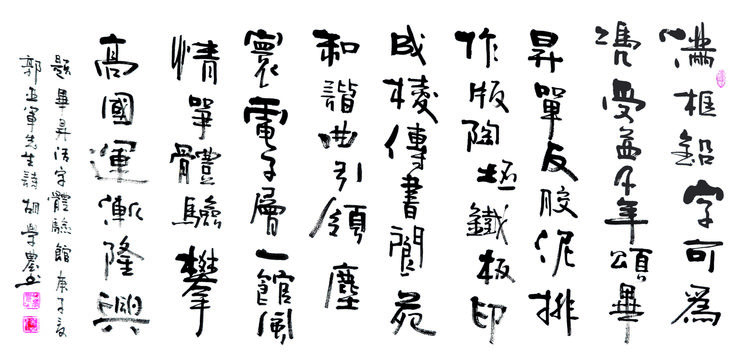 滿框鉛字可為
憑受益千年頌畢
昇單反胶泥排
作版陶坯鐵板印
成棱傳書閬苑
和諧曲引領塵
寰電子層一館風
情爭體驗攀
高國運漸隆興
題畢昇活字體驗館庚子夏
郭亞軍先生詩胡學農書